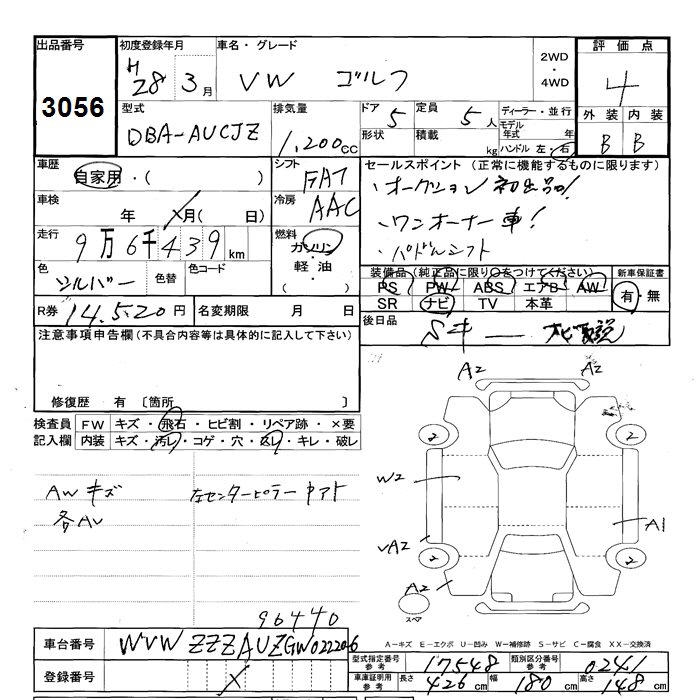 出品番号 初度登録年月 車名・グレード 評価点
3056 H28 3月 VW ゴルフ 2WD・4WD 4
型式 排気量 ドア 定員 ディーラー・並行 外装 内装
DBA-AUCJZ 1,200cc 5 5人 モデル年式 年 B B
形状 積載 kg ハンドル 左・右
車歴 自家用・( ) シフト FAT セールスポイント (正常に機能するものに限ります)
車検 年 月( 日) 冷房 AAC ・オークション初出品!
走行 9万6千439km 燃料 ガソリン・軽油・( ) ・ワンオーナー車!
色 シルバー 色替 色コード ・パドルシフト
装備品 (純正品に限り○をつけてください) 新車保証書
PS PW ABS エアB AW 有・無
SR ナビ TV 本革
R券 14,520円 名変期限 月 日 後日品
注意事項申告欄(不具合内容等は具体的に記入して下さい)
修復歴 有 〔箇所 〕
検査員記入欄 FW キズ・飛石・ヒビ割・リペア跡・×要
内装 キズ・汚レ・コゲ・穴・スレ・キレ・破レ
A2 A2
2 2
AWキズ 左センターピラー W2
各AU A1
A2
2 2
A2
スペア
96440
A-キズ E-エクボ U-凹み W-補修跡 S-サビ C-腐食 XX-交換済
車台番号 WVWZZZAUZGW022206 型式指定番号参考 17548 類別区分番号参考 0241
登録番号 車庫証明用参考 長さ 426cm 幅 180cm 高さ 148cm